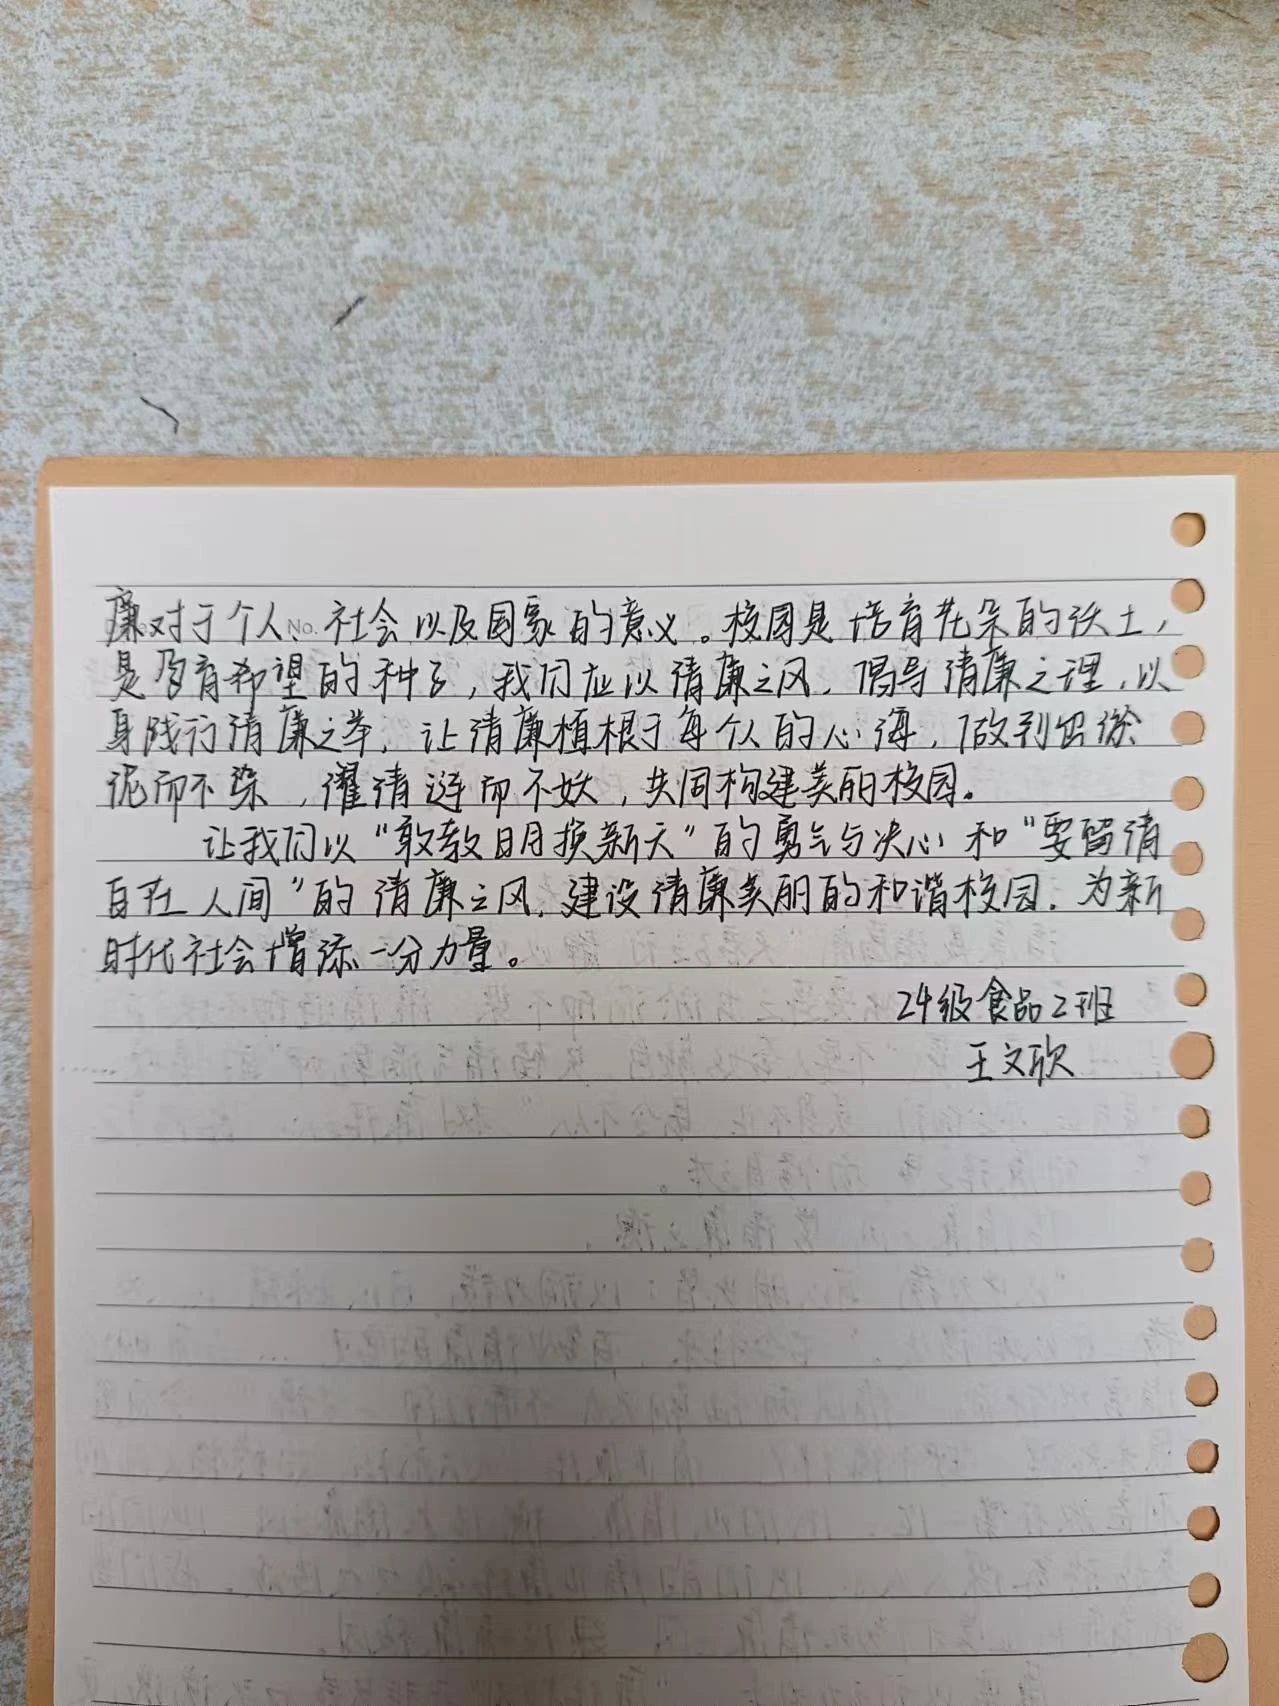 廉对于个人No.社会以及国家的意义。校园是培育花朵的沃土，
是孕育希望的种子，我们应以清廉之风，倡导清廉之理，以
身践行清廉之举，让清廉植根于每个人的心海，做到出淤
泥而不染，濯清涟而不妖，共同构建美丽校园。
让我们以“敢教日月换新天”的勇气与决心和“要留清
白在人间”的清廉之风，建设清廉美丽的和谐校园，为新
时代社会增添一分力量。
24级食品2班
王文欣